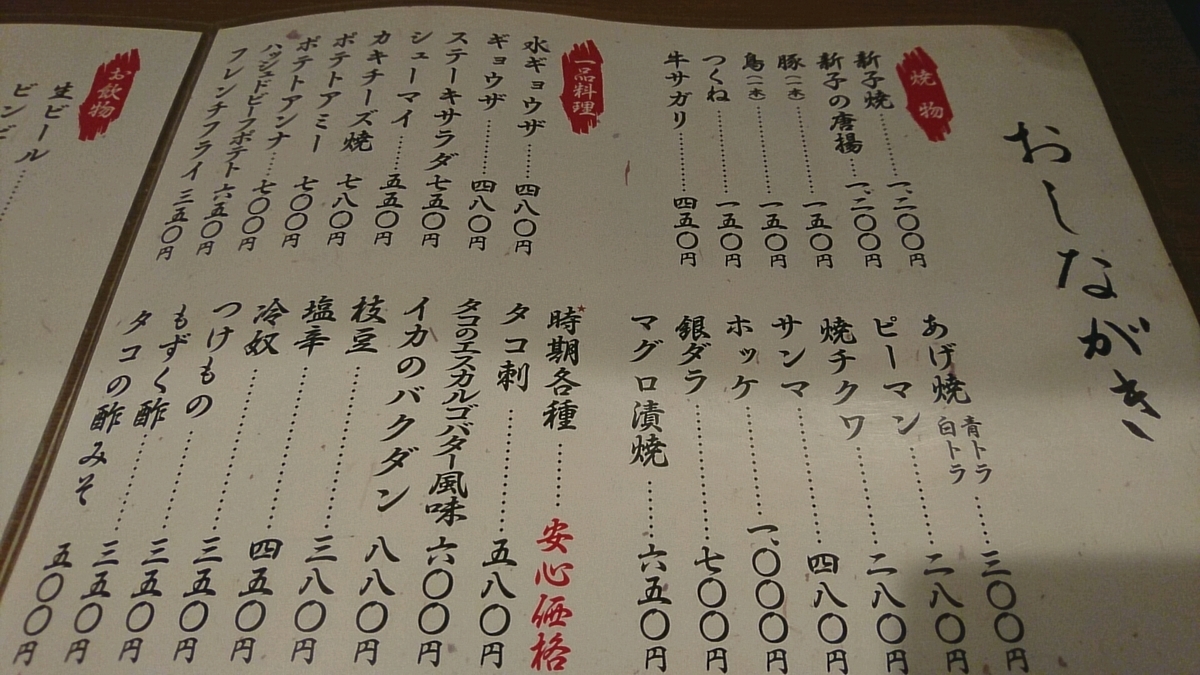 おしながき
焼物
新子焼 一、二〇〇円
新子の唐揚 一、二〇〇円
豚(一本) 一五〇円
鳥(一本) 一五〇円
つくね 一五〇円
牛サガリ 四五〇円
あげ焼 青トラ 白トラ 三〇〇円
ピーマン 二八〇円
焼チクワ 二八〇円
サンマ 四八〇円
ホッケ 一、〇〇〇円
銀ダラ 七〇〇円
マグロ漬焼 六五〇円
一品料理
水ギョウザ 四八〇円
ギョウザ 四八〇円
ステーキサラダ 七五〇円
シューマイ 五五〇円
カキチーズ焼 七八〇円
ポテトアミー 七〇〇円
ポテトアンナ 七〇〇円
ハッシュドビーフポテト 六五〇円
フレンチフライ 三五〇円
時期各種 安心価格
タコ刺 五八〇円
タコのエスカルゴバター風味 六〇〇円
イカのバクダン 八八〇円
枝豆 三八〇円
塩辛 四五〇円
冷奴 三五〇円
つけもの 三五〇円
もずく酢 三五〇円
タコの酢みそ 五〇〇円
お飲物
生ビール